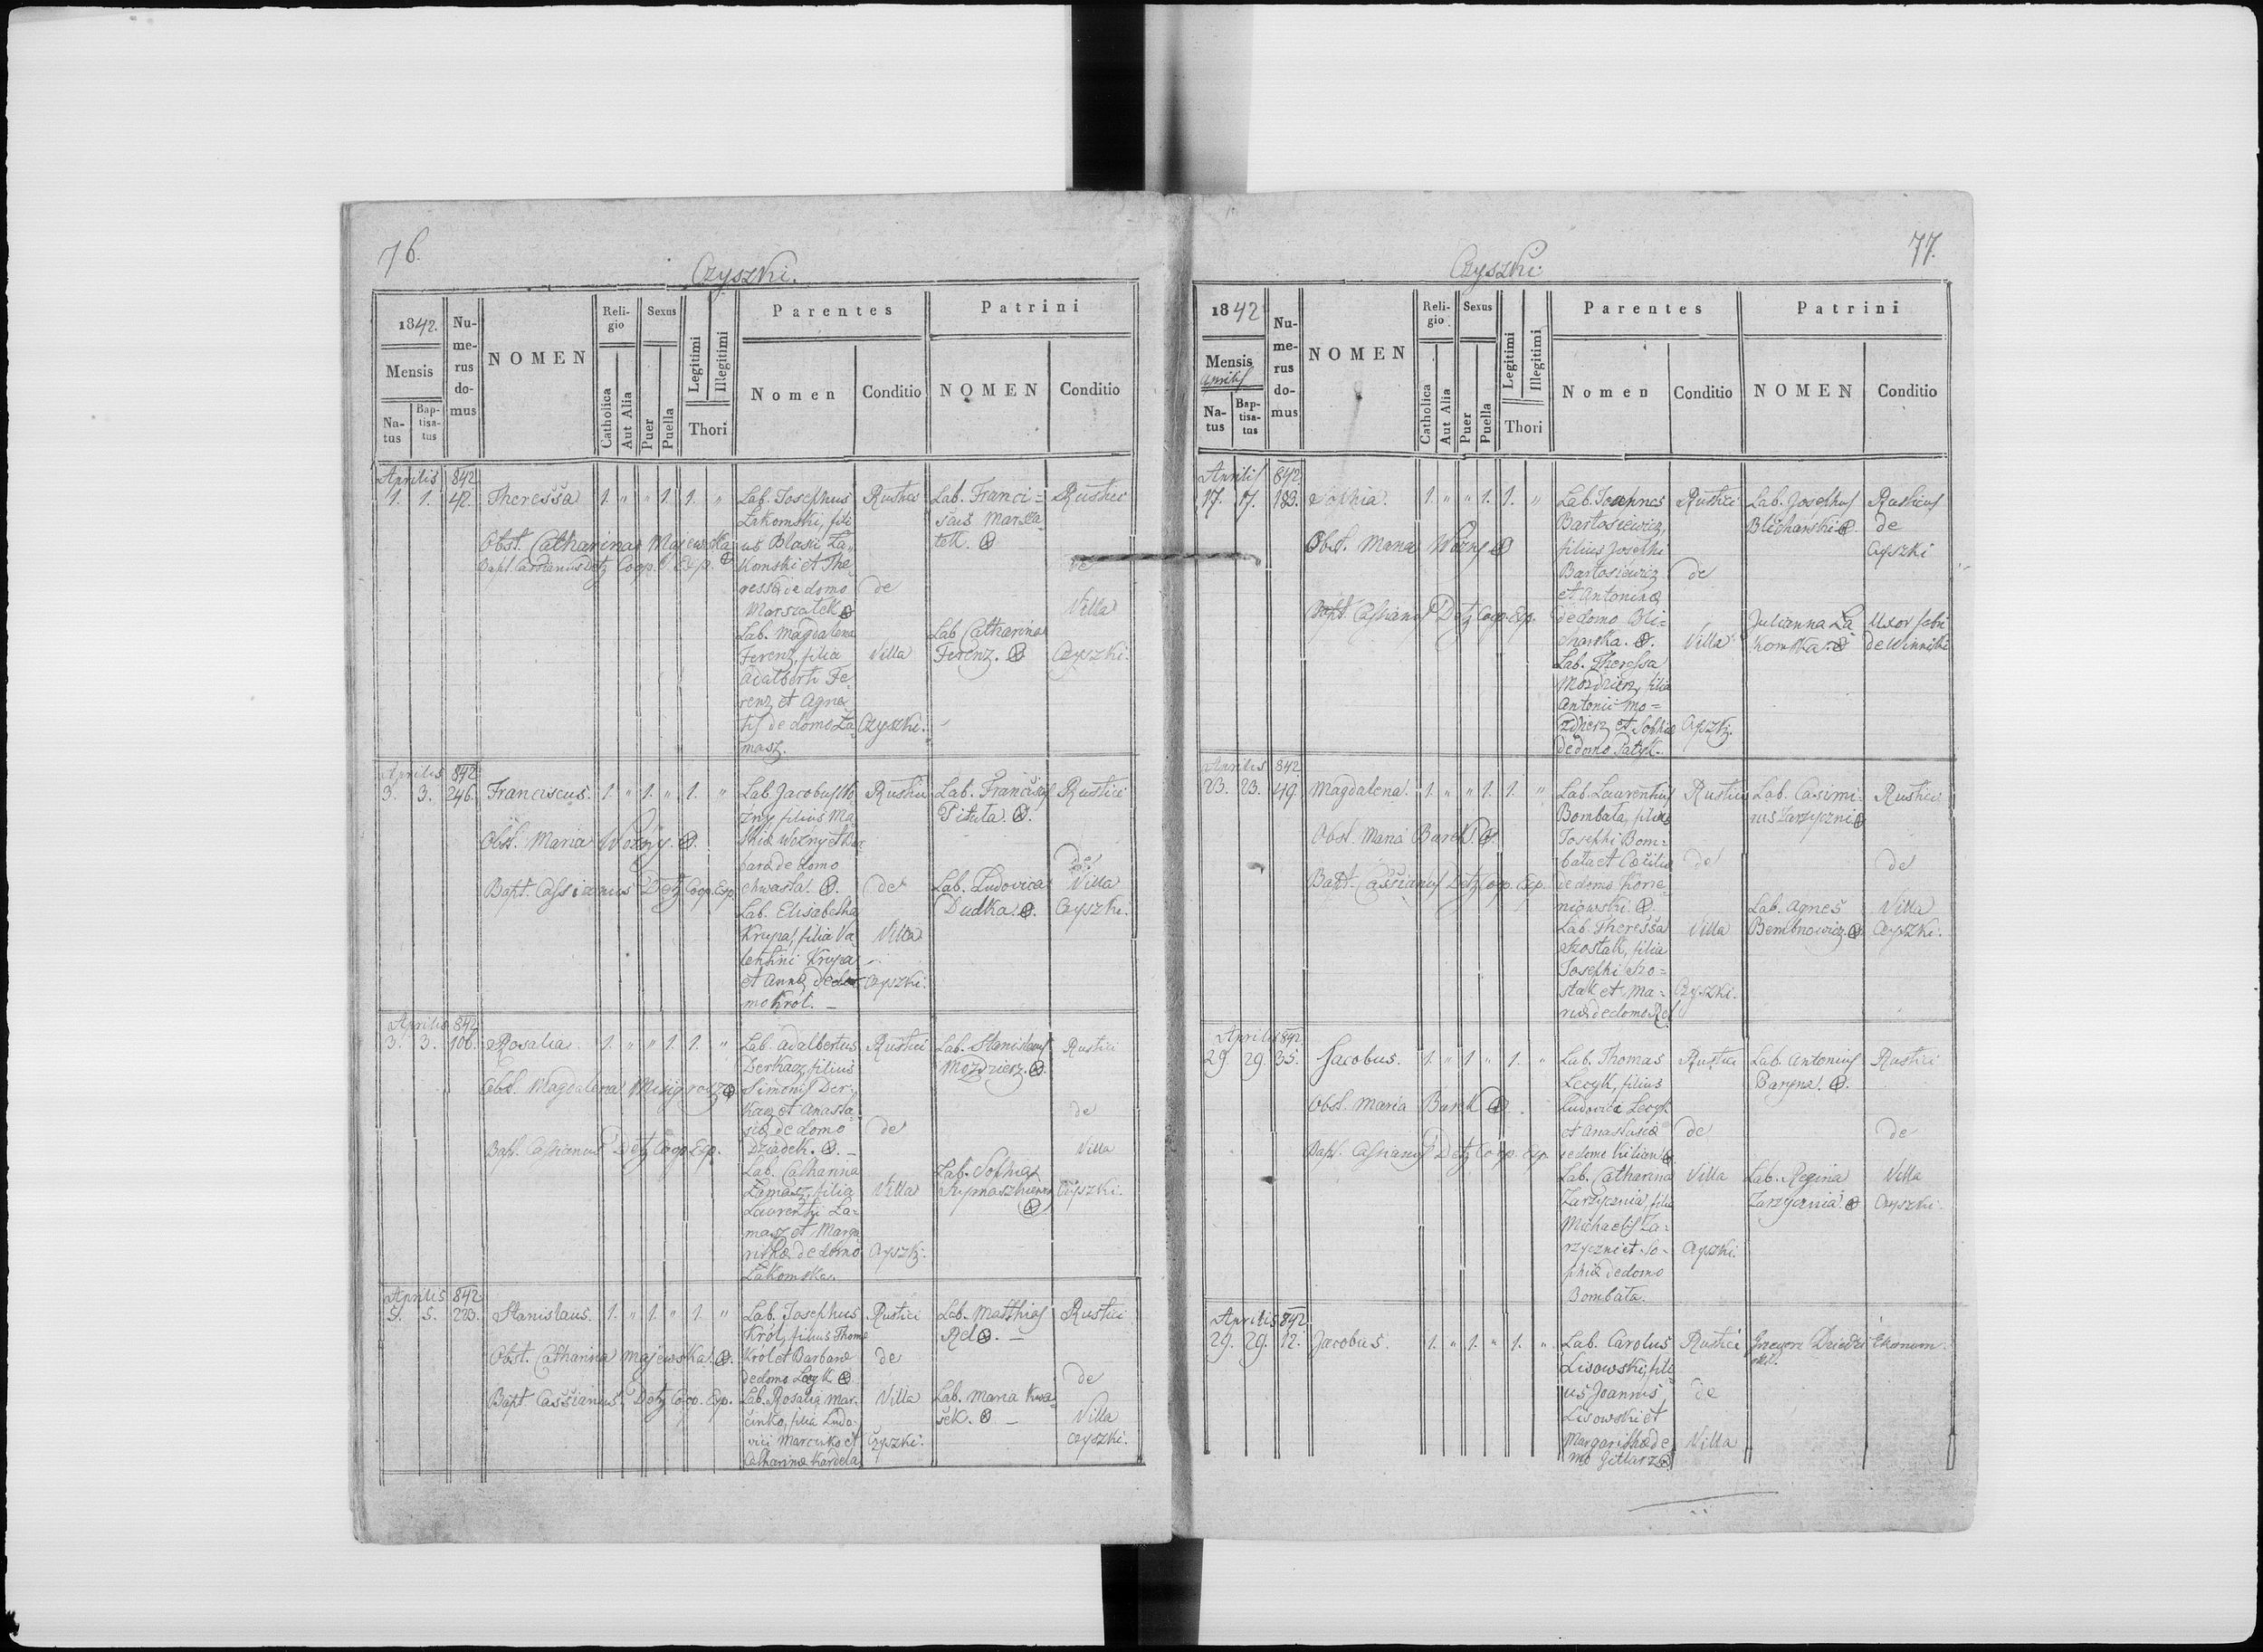 76.
Czyszki.
1842.
Mensis
Natus
Baptisatus
Numerus domus
NOMEN
Religio
Catholica
Aut Alia
Sexus
Puer
Puella
Legitimi
Illegitimi
Thori
Parentes
Nomen
Conditio
Patrini
NOMEN
Conditio
Aprilis 842
1. 1. 42. Theressa 1. " " 1. 1. "
Obst. Catharina Majewska
Bapt. Cassianus Detz Coop. Exp.
Lab. Josephus
Łakomski, fili
us Blasii Ła
komski et The
ressæ de domo
Marszałek
Lab. Magdalena
Ferenz, filia
Adalberti Fe
renz et Agne
tis de domo Ła
masz.
Rustici
de
Villa
Czyszki.
Lab. Franci=
scus Marsza
łek.
Lab Catharina
Ferenz.
Rustici
de
Villa
Czyszki.
Aprilis 842
3. 3. 246. Franciscus. 1. " 1. " 1. "
Obst. Maria Wozny.
Bapt. Cassianus Detz Coop. Exp.
Lab. Jacobus Wo
zny filius Ma
thiæ Wozny et Bar
bara de domo
chwasta.
Lab. Elisabetha
Krupa, filia Va
lentini Krupa
et Annæ de do
mo Krol. –
Rustici
de
Villa
Czyszki.
Lab. Franciscus
Pituła.
Lab. Ludovica
Dudka.
Rustici
de
Villa
Czyszki.
Aprilis 842
3. 3. 106. Rosalia. 1. " " 1. 1. "
Obst. Magdalena
Bapt. Cassianus Detz Coop Exp.
Lab. Adalbertus
Derkacz, filius
Simonis Der=
kacz et Anasta
siæ de domo
Dziadek. –
Lab. Catharina
Łamasz, filia
Laurentii Ła=
masz et Marga
rithæ de domo
Łakomska.
Rustici
de
Villa
Czyszki.
Lab. Stanislaus
Mozdzierz.
Lab. Sophia
Rustici
de
Villa
Czyszki.
Aprilis 842
5. 5. 223. Stanislaus. 1. " 1. " 1. "
Obst. Catharina Majewska.
Bapt. Cassianus Detz Coop. Exp.
Lab. Josephus
Król, filius Thomæ
Król et Barbaræ
de domo Lecyk
Lab. Rosalia Mar=
cinko, filia Ludo
vici Marcinko et
Catharinæ Kardela
Rustici
de
Villa
Czyszki.
Lab. Matthias
Rel. –
Lab. Maria Kwa
sek. –
Rustici
de
Villa
Czyszki.
77.
Czyszki
1842
Mensis
Aprilis
Natus
Baptisatus
Numerus domus
NOMEN
Religio
Catholica
Aut Alia
Sexus
Puer
Puella
Legitimi
Illegitimi
Thori
Parentes
Nomen
Conditio
Patrini
NOMEN
Conditio
Aprilis 842
17. 17. 183. Sophia. 1. " " 1. 1. "
Obst. Maria Wozny
Bapt. Cassianus Detz Coop. Exp.
Lab. Joannes
Bartosiewicz,
filius Josephi
Bartosiewicz
et Antoninæ
de domo Bli=
charska.
Lab. Theressa
Mozdzierz, filia
Antonii Mo=
zdzierz et Sophiæ
de domo Patyk.
Rustici
de
Villa
Czyszki.
Lab. Josephus
Blicharski.
Julianna Ła
komska.
Rusticus
de
Czyszki
Uxor fabri
de Winniki
Aprilis 842
23. 23. 49. Magdalena. 1. " " 1. 1. "
Obst. Maria Barek.
Bapt. Cassianus Detz Coop. Exp.
Lab. Laurentius
Bombała, filius
Josephi Bom=
bała et Cæciliæ
de domo Korze
niowski.
Lab. Theressa
Szostak, filia
Josephi Szo=
stak et Ma=
riæ de domo Rel
Rustici
de
Villa
Czyszki.
Lab. Casimi=
rus Zarzyczni.
Lab. Agnes
Bembnowicz.
Rustici
de
Villa
Czyszki.
Aprilis 842
29. 29. 35. Jacobus. 1. " 1. " 1. "
Obst. Maria Barek
Bapt. Cassianus Detz Coop. Exp.
Lab. Thomas
Lecyk, filius
Ludovici Lecyk
et Anastasiæ
de domo Kilian
Lab. Catharina
Zarzycznia, filia
Michaelis Za=
rzyczni et So=
phiæ de domo
Bombała.
Rustici
de
Villa
Czyszki.
Lab. Antonius
Baryna.
Lab. Regina
Zarzycznia.
Rustici
de
Villa
Czyszki.
Aprilis 842
29. 29. 12. Jacobus. 1. " 1. " 1. "
Lab. Carolus
Lisowski, fili
us Joannis
Lisowski et
Margarithæ de
mo Gitlarz
Rustici
de
Villa